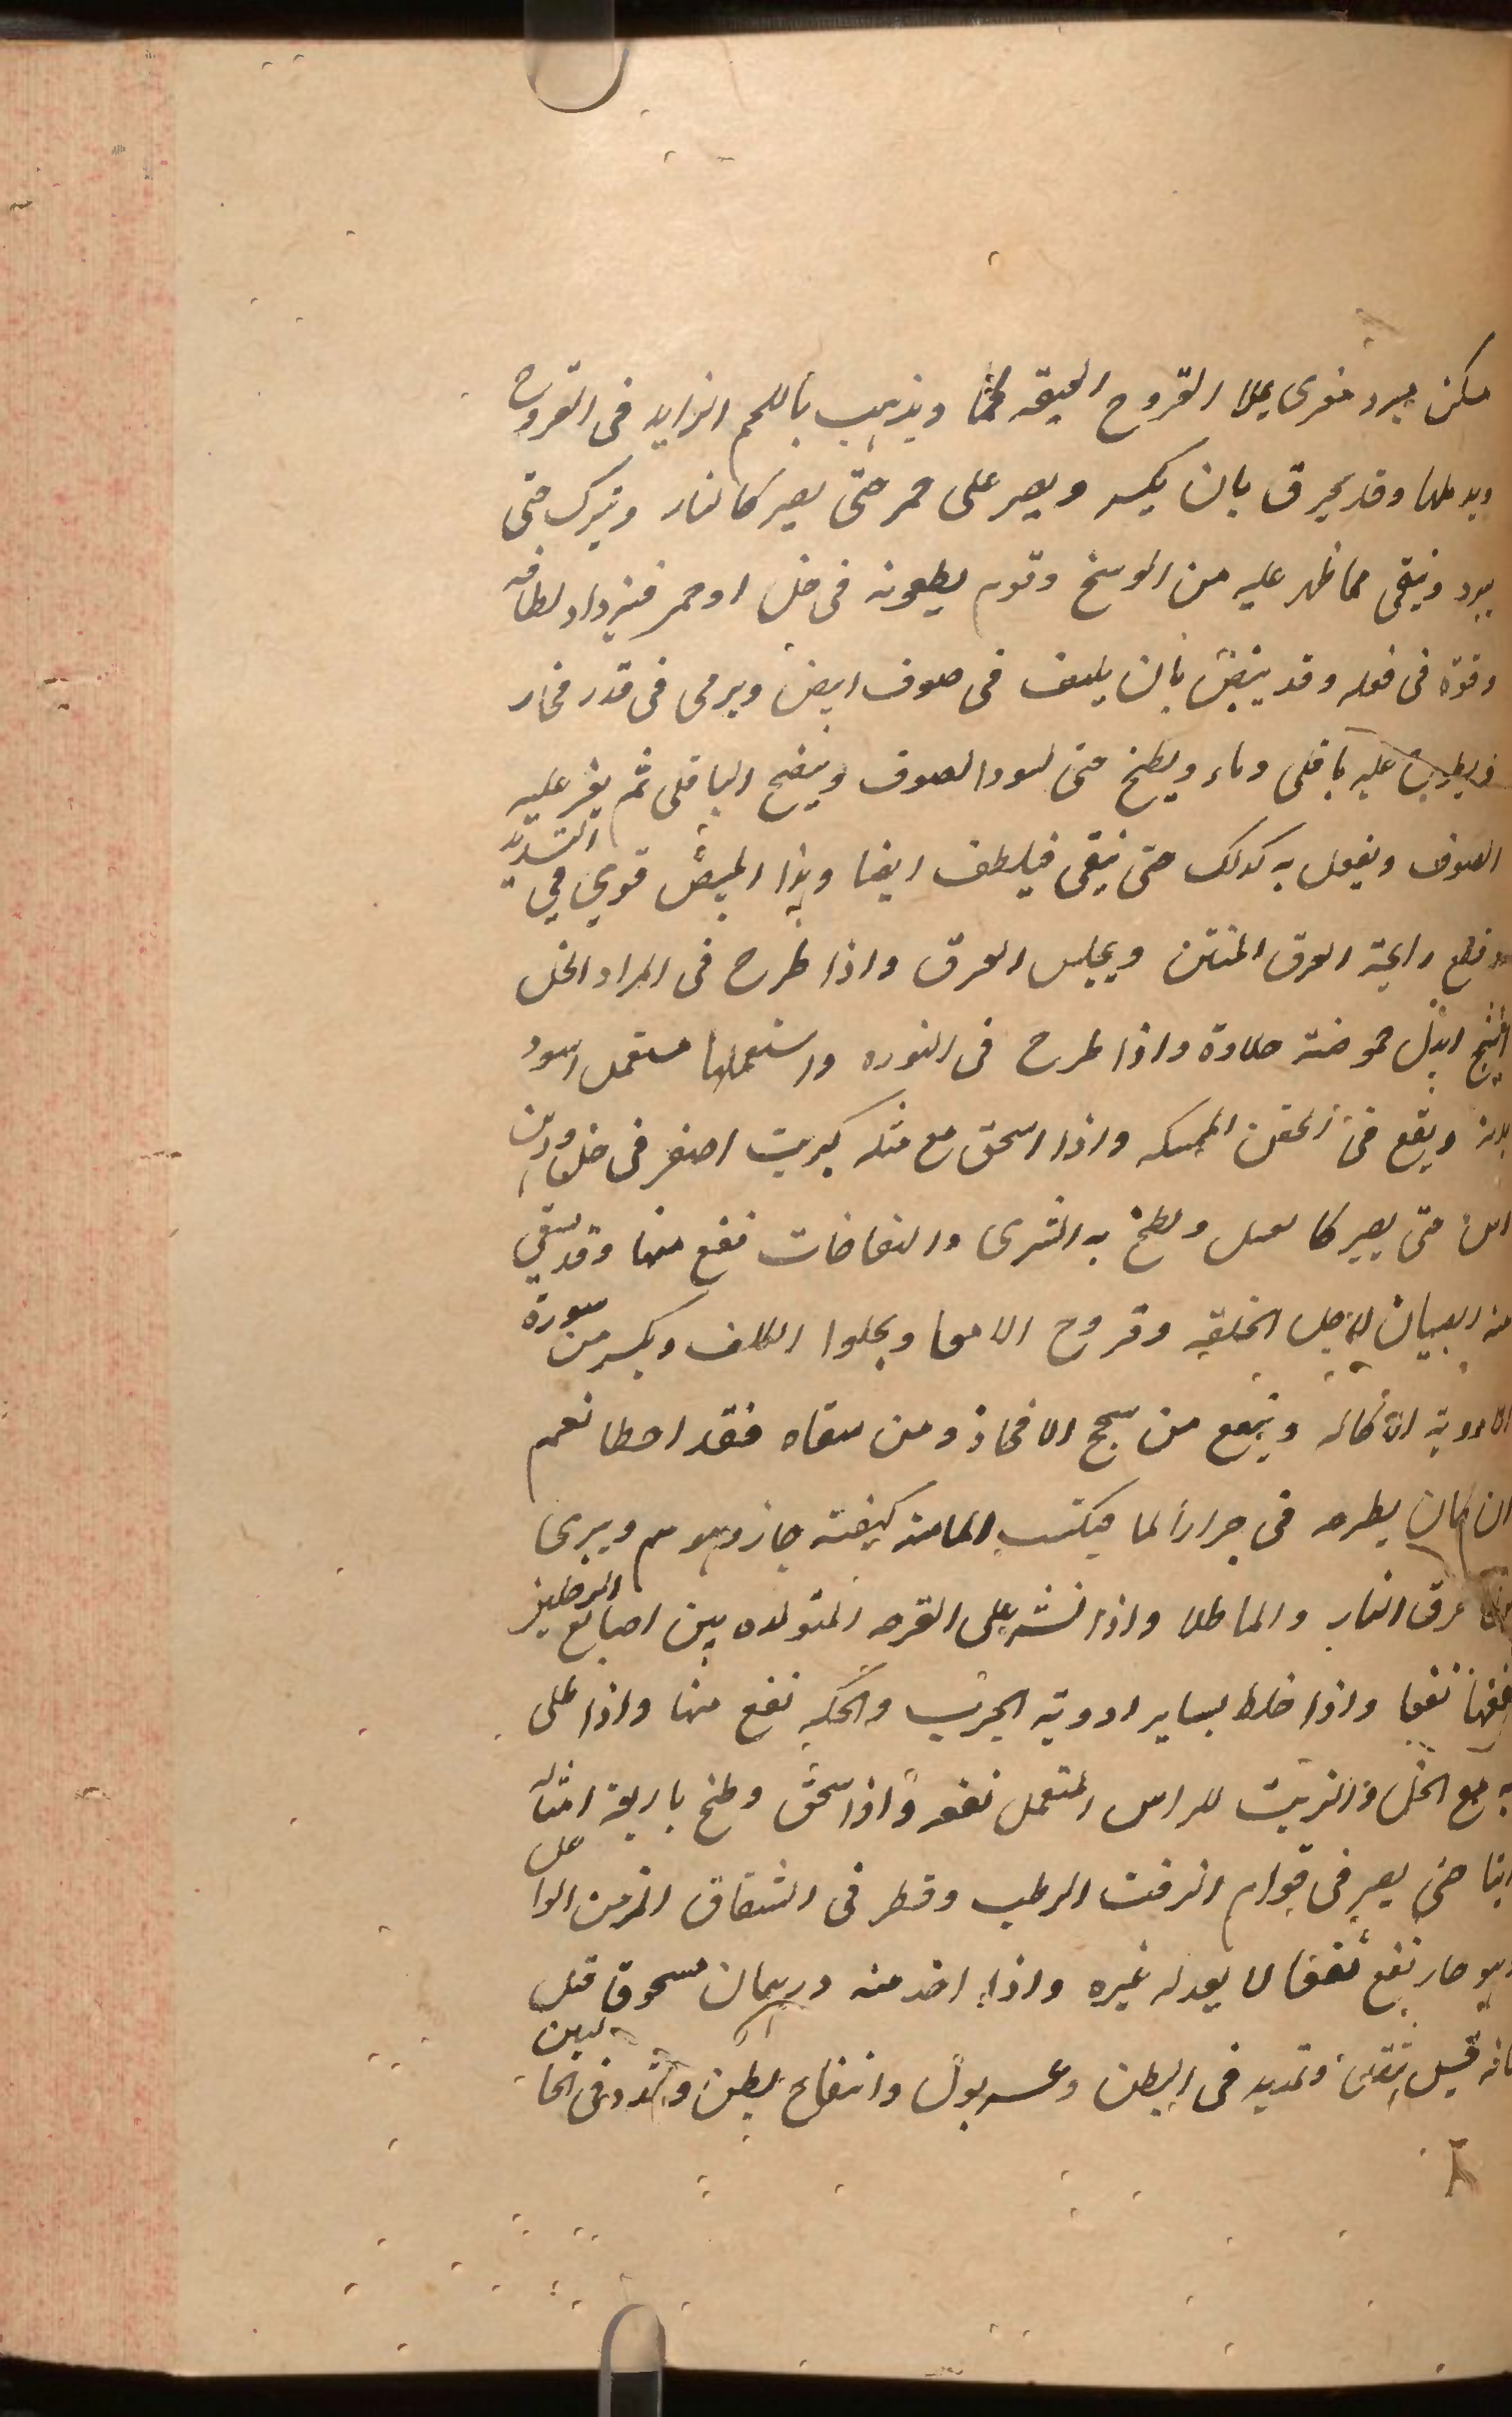 مسكن مبرد مغرى يملا القروح العميقه لحما ويذهب باللحم الزايد فى القروح
ويدملها وقد يحرق بان يكسر ويصير على جمر حتى يصير كالنار ويترك حتى
يبرد وينقى مما ظهر عليه من الوسخ وقوم يطفونه فى خل او خمر فيزداد لطافه
وقوة فى فعله وقد يبيض بان يلف فى صوف ابيض ويرمى فى قدر فخار
ويطرح عليه باقلى وماء ويطبخ حتى يسود الصوف وينضج الباقلى ثم يغير عليه
الصوف ويفعل به كذلك حتى ينقى فيلطف ايضا وهذا المبيض قوي في التبريد
وقطع رايحة العرق المنتن ويحبس العرق واذا طرح فى المراد الخل
ابدل حموضته حلاوة واذا طرح فى النوره واستعملها مستعمل اسود
بدنه ويقع فى الحقن الممسكه واذا اسحق مع مثله كبريت اصفر فى خل ودهن
اس حتى يصير كالعسل ولطخ به الشرى والنفاخات نفع منها وقد يسقي
منه الصبيان لاجل الخلقه وقروح الامعا ويجلوا الكلف ويكسر من سورة
الادوية الاكاله وينفع من سحج الافخاذ ومن سقاه فقد اخطا نعم
ان كان يطرحه فى جرار الما فيكتسب الما منه كيفيته جاز وهو سم ويبرى
حرق النار والما طلا واذا نثر على القرحه المتولده بين اصابع الرجلين
نفعها نفعا واذا خلط بساير ادوية الجرب والحكه نفع منها واذا طلى
به مع الخل والزيت للراس المتقمل نفعه واذا سحق وطبخ باربعة امثاله
زيتا حتى يصير فى قوام الزفت الرطب وقطر فى الشقاق المزمن الواغل
وهو حار نفع نفعا لا يعدله غيره واذا اخذ منه درهمان مسحوقا قتل
فانه قيل ثقل وتمديد فى البطن وعسر بول وانتفاخ بطن وتمدد فى الجنبين